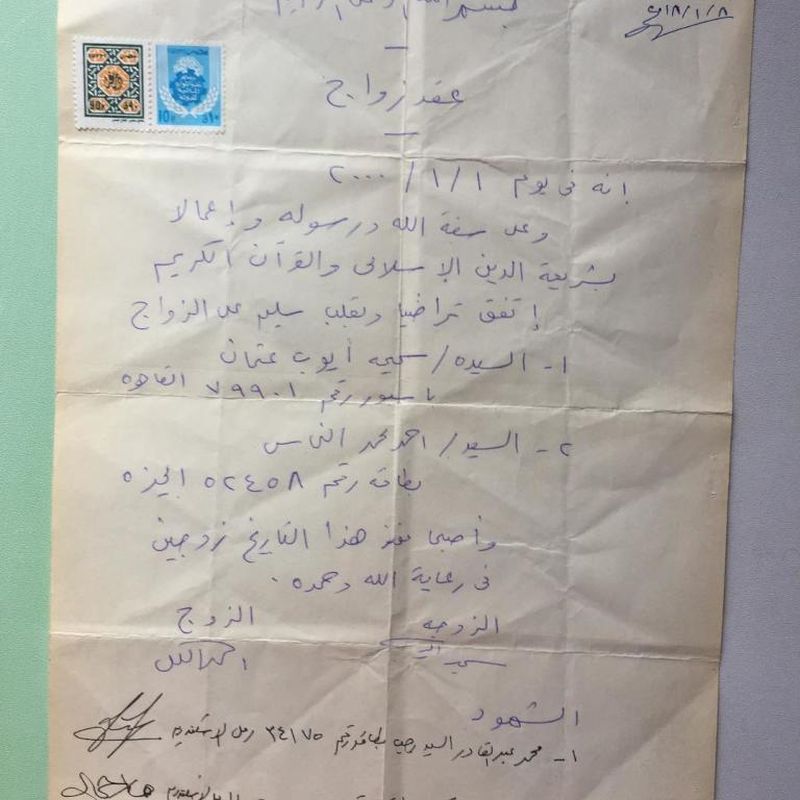 عقد زواج
إنه فى يوم ١/١/٢٠٠٠
وعلى سنة الله ورسوله وإعمالا
بشريعة الدين الإسلامى والقرآن الكريم
إتفق تراضيا وبقلب سليم على الزواج
١- السيده/ سميه أيوب عثمان
باسبور رقم ٧٩٩٠١ القاهره
٢- السيد/ احمد محمد النحاس
بطاقه رقم ٥٢٤٥٨ الجيزه
وأصبحا منذ هذا التاريخ زوجين
فى رعاية الله وحمده.
الزوجه الزوج
الشهود
١- محمد عبد القادر السيد رجب بطاقه رقم ٣٤١٧٥ رمل الاسكندريه